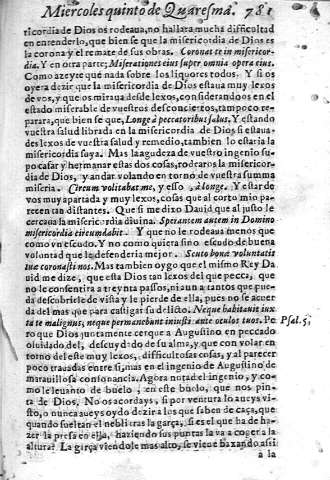 Miercoles quinto de Quaresma. 781
ricordia de Dios rodeaua, no hallara mucha dificultad
en entenderlo, que bien se que la misericordia de Dios es
la corona y el remate de sus obras. Coronat te in misericor-
dia. Y en otra parte; Miserationes eius super omnia opera eius.
Como azeyte que nada sobre los liquores todos. Y si os
oyera dezir que la misericordia de Dios estaua muy lexos
de vos, y que os miraua desde lexos, considerandos en el
estado miserable de vuestros desconciertos, tampoco re-
parara, que bien se que, Longè à peccatoribus salus, Y estando
vuestra salud librada en la misericordia de Dios si estaua-
des lexos de vuestra salud y remedio, tambien lo estaria la
misericordia suya. Mas la agudeza de vuestro ingenio su-
po casar y hermanar estas dos cosas, rodearos la misericor-
dia de Dios, y andar volando en torno de vuestra summa
miseria. Circum volitabat me, y esso, à longe. Y estar de
vos muy apartada y muy lexos, cosas que al corto mio pa-
recen tan distantes. Que si me dixo Dauid que al justo le
cercaua la misericordia diuina. Sperantem autem in Domino
misericordia circumdabit. Y que no le rodeaua menos que
como vn escudo. Y no como quiera sino escudo de buena
voluntad que le defenderia mejor. Scuto bonæ voluntatis
tuæ coronasti nos. Mas tambien oygo que el mismo Rey Da
uid me dize, que esta Dios tan lexos del que pecca, que
no le consentira a treynta passos, ni aun a tantos que pue-
da descubrirle de viña y le pierde de ella, pues no se acuer
da del mas que para castigar su delicto. Neque habitauit iux
ta te malignus, neque permanebunt iniusti ante oculos tuos. Pe Psal. 5.
ro que Dios juntamente cerque a Augustino en peccado
oluidado del, descuydado de su alma, y que con volar en
torno del este muy lexos, dificultosas cosas, y al parecer
poco trauadas entre si, mas en el ingenio de Augustino de
marauillosa consonancia. Agora notad el ingenio, y co-
mo le leuanto de buelo, en este buelo, que nos pin-
ta de Dios. No os acordays, si por ventura lo aueys vis-
to, o nunca aueys oydo dezir a los que saben de caça, que
quando sueltan el nebli tras la garça, si es el que ha de ha-
zer la presa en ella, haziendo sus puntas la va a coger a la
altura? La garça viendole mas alto, se viene baxando assi
a la